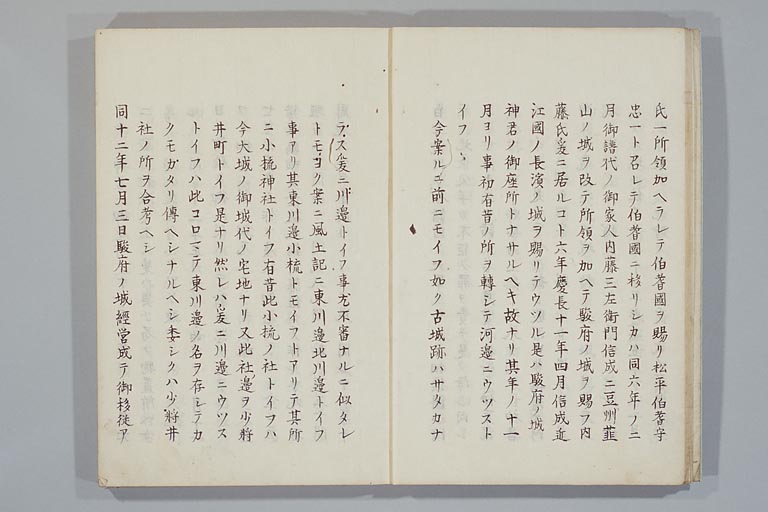 氏一所領加ヘラレテ伯耆國ヲ賜リ松平伯耆守
忠一ト召レテ伯耆國ニ移リシカハ同六年ノ二
月御譜代ノ御家人内藤三左衛門信成ニ豆州韮
山ノ城ヲ改テ所領ヲ加ヘテ駿府ノ城ヲ賜フ内
藤氏爰ニ居ルコト六年慶長十一年四月信成近
江國ノ長濱ノ城ヲ賜リテウツル是ハ駿府ノ城
神君ノ御座所トナサルヘキ故ナリ其年ノ十一
月ヨリ事初有昔ノ所ヲ轉シテ河邉ニウツスト
イフ
今案ルニ前ニモイフ如ク古城跡ハサタカナ
ラス爰ニ川邉トイフ事尤不審ナルニ似タレ
トモヨク案ニ風土記ニ東川邉北川邉トイフ
事アリ其東川邉小梳トモイフトアリテ其所
ニ小梳神社トイフ有昔此小梳ノ社トイフハ
今大城ノ御城代ノ宅地ナリ又此社邉ヲ少将
井町トイフ是ナリ然レハ爰ニ川邉ニウツス
トイフハ此コロマテ東川邉ノ名ヲ存シテカ
クモカタリ傳ヘシナルヘシ委シクハ少将井
ノ社ノ所ヲ合考ヘシ
同十二年七月三日駿府ノ城經営成テ御移徙ア